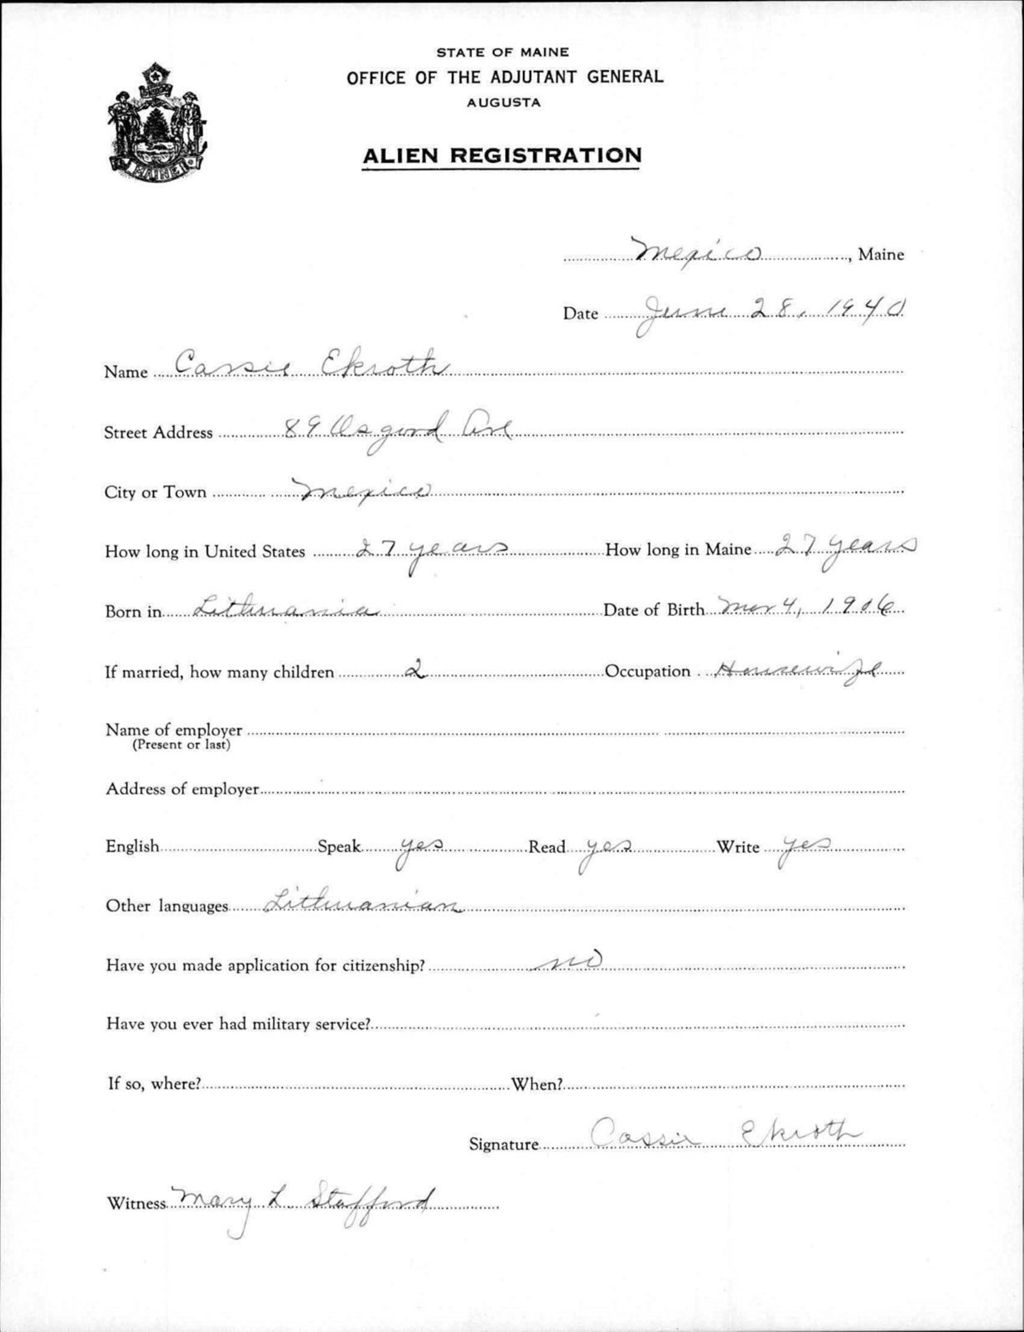 STATE OF MAINE
OFFICE OF THE ADJUTANT GENERAL
AUGUSTA
ALIEN REGISTRATION
MAINE
Mexico, Maine
Date June 28, 1940
Name Cassie Ekroth
Street Address 89 Osgood Ave
City or Town Mexico
How long in United States 27 years How long in Maine 27 years
Born in Lithuania Date of Birth Mar 4, 1906
If married, how many children 2 Occupation Housewife
Name of employer
(Present or last)
Address of employer
English Speak yes Read yes Write yes
Other languages Lithuanian
Have you made application for citizenship? no
Have you ever had military service?
If so, where? When?
Signature Cassie Ekroth
Witness Mary L. Stafford